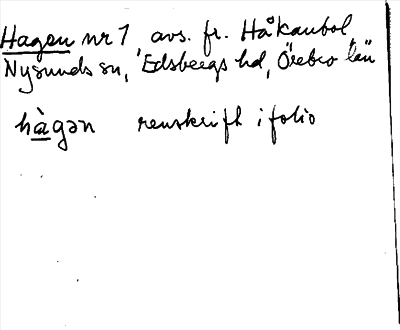 Hagen nr 1, avs. fr. Håkanbol
Nysunds sn, Edsbergs hd, Örebro län
hàgən renskrift i folio